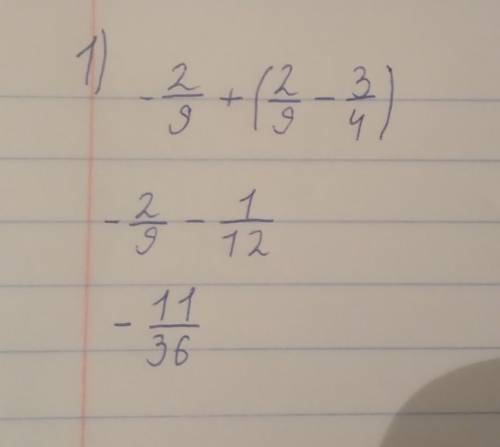 1) -2/9 + (2/9 - 3/4)
-2/9 - 1/12
-11/36